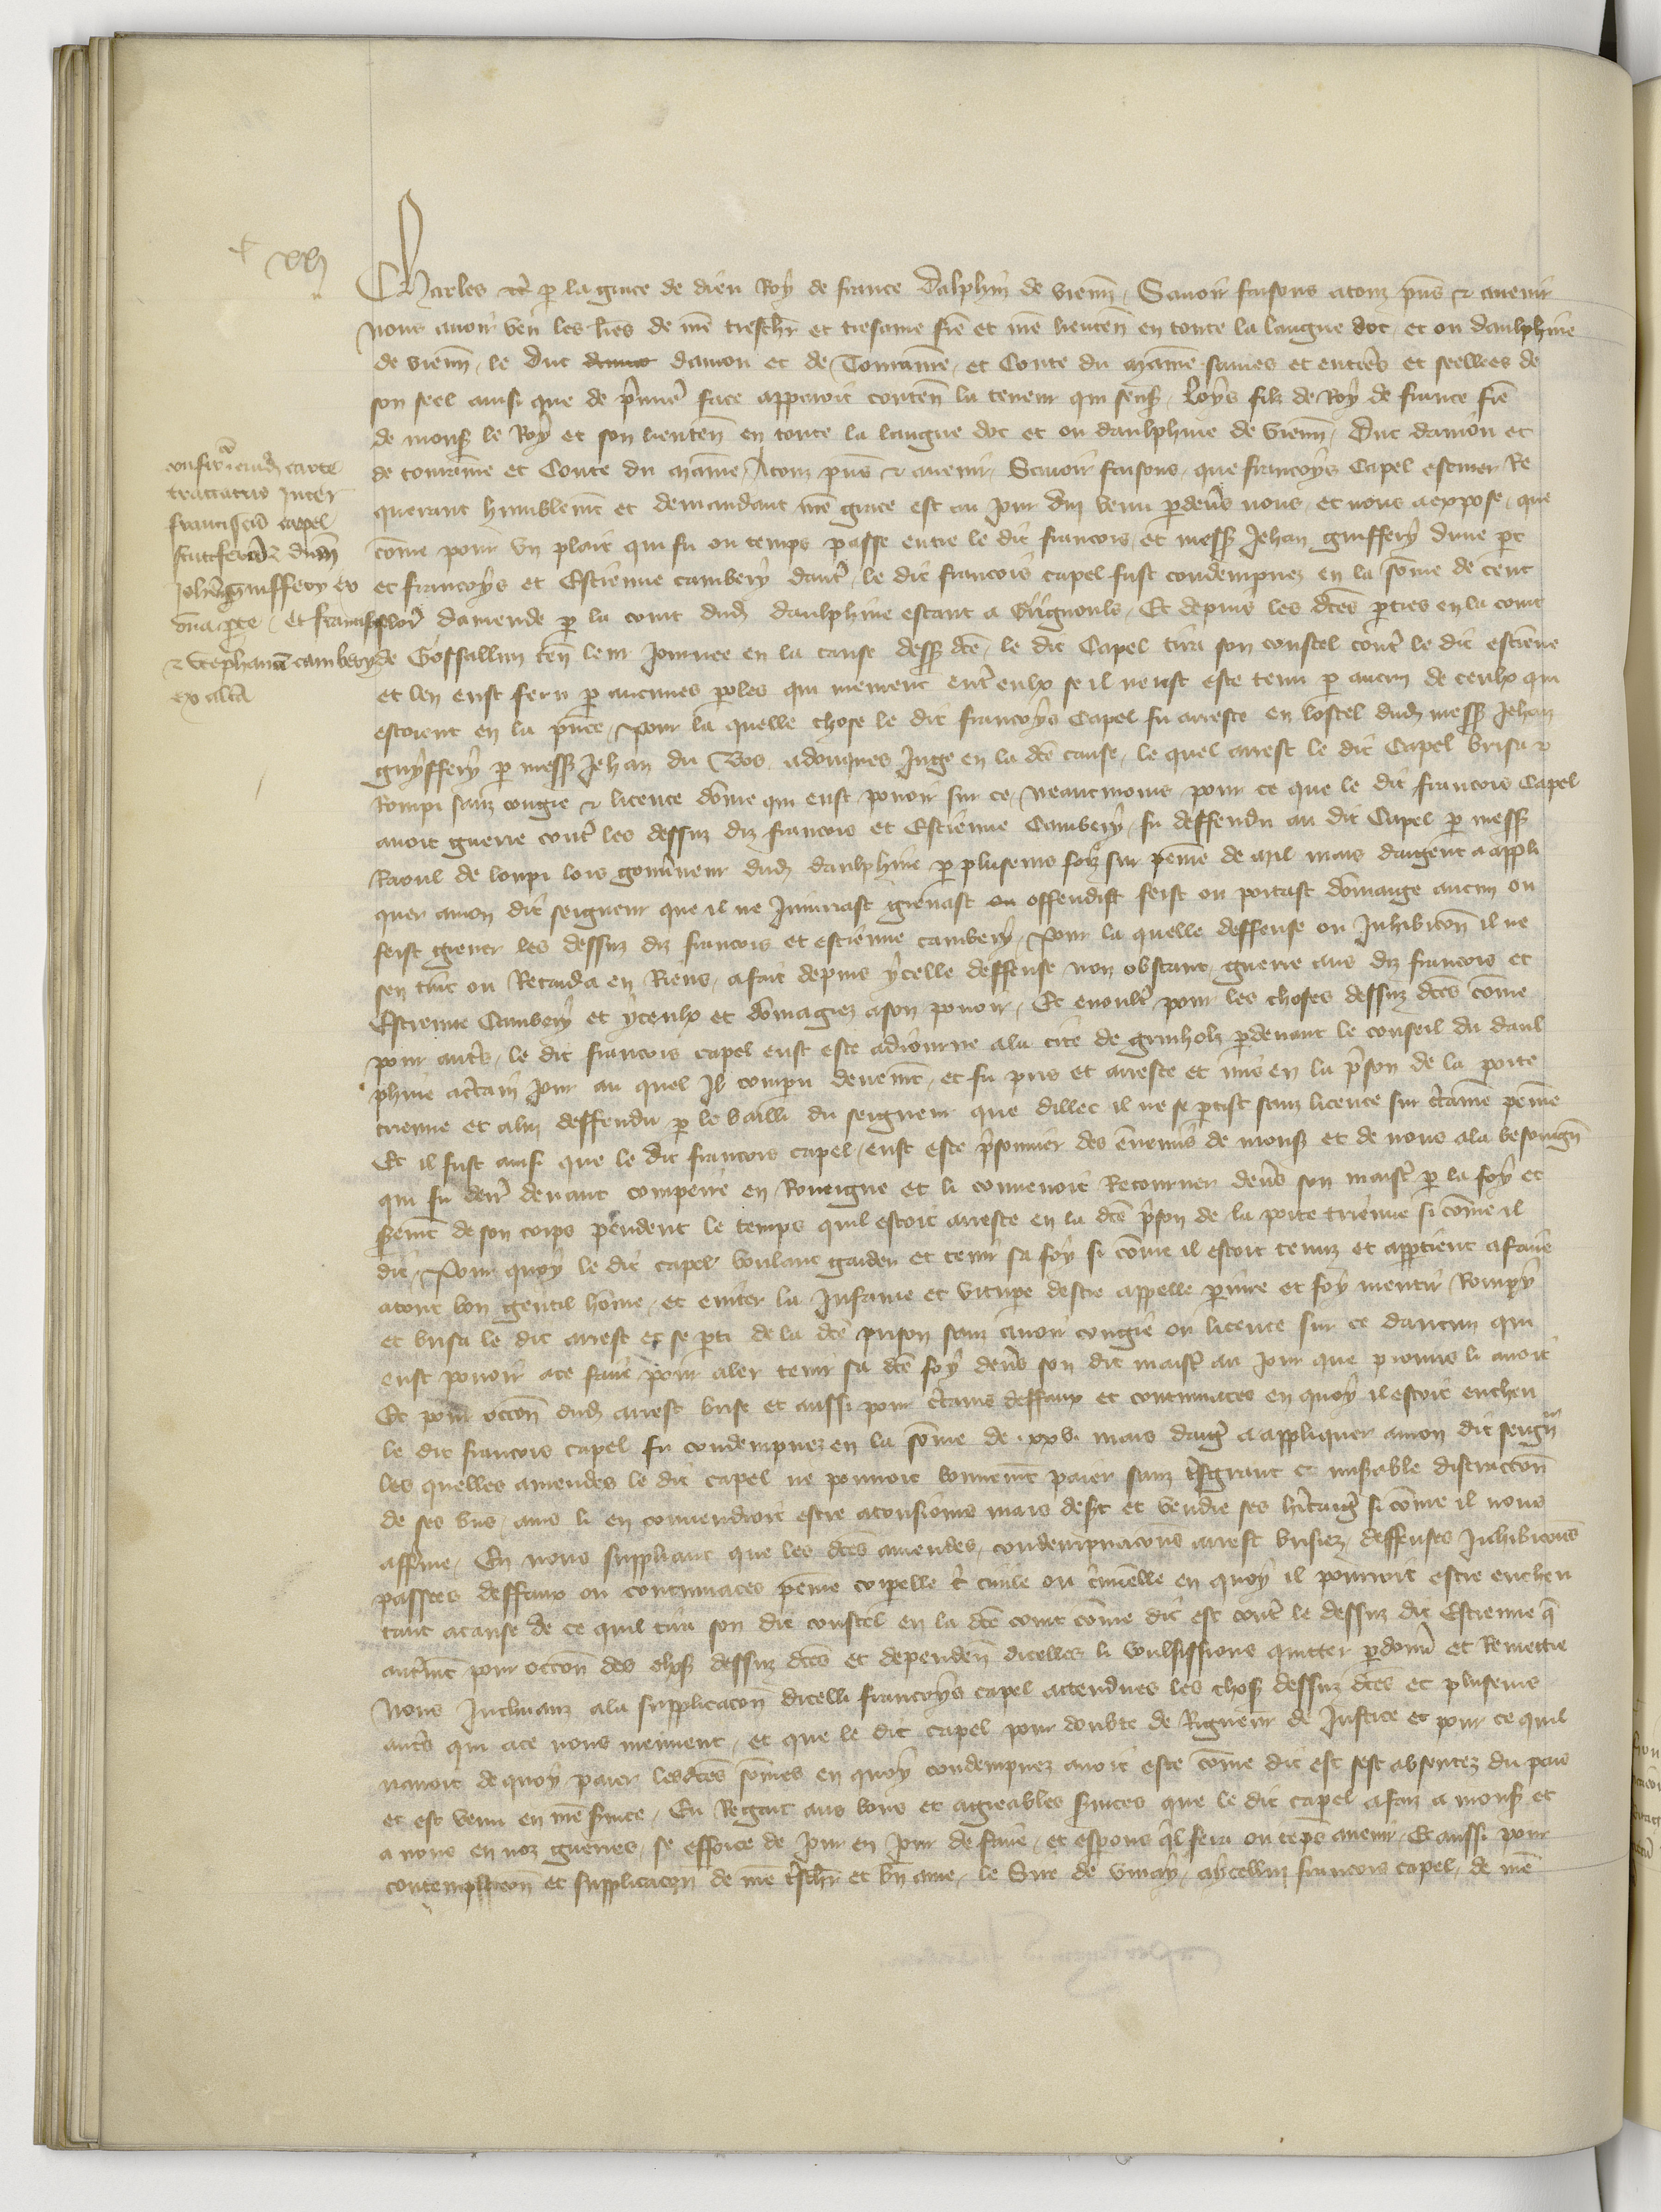 xxij
Charles etc̃ p la grace de dieu Roy de france Dalphin de vienñ, Savoir faisons a touz p̃ns ⁊ avenir
nous avoir veu les lr̃es de nr̃e treschr̃ et tresame fr̃e et nr̃e lieuteñ en toute la langue doc, et ou daulphine
de vienñ, le duc danjou et de Tourainne, et Conte du Mainne saines et entieres et seellees de
son seel ainsi que de p̃miere face apparoit conteñ la teneur qui senß, Loÿs filz de Roy de france fr̃e
de monß le Roy et son lieuteñ en toute la langue doc et ou daulphine de vienñ, Duc danjou et
de tourainne et Conte du Mainne, A touz p̃ns ⁊ avenir, Savoir faisons, que francoys Capel escuier Re
querant humblemẽt et demandant nr̃e grace est au jour duy venu pdevs̃ nous, et nous a expose, que
cõme pour un plait qui fu ou temps passe entre le dit francois, et messß Jehan guiffery dune pt
et francoys et Estienne cambery dautr̃, le dit francois capel fust condempnez en la sõme de cent
flor̃ damende p la court dud daulphine estant a Avignonls, Et depuis les dc̃es pties en la court
de Gossallun teñ leur Journee en la cause dessß dc̃e, le dit Capel tira son coustel contr̃ le dit estiẽne
et len eust feru p aucunes poles qui murent entr̃ eulx se il neust este tenu p aucun de ceulx qui
estoient en la p̃nce, Pour la quelle chose le dit francoys Capel fu arreste en lostel dud messß Jehan
guyffery p messß Jehan du Bos adonques Juge en la dc̃e cause, le quel arrest le dit Capel brisa ⁊
Rompi sanz congie ⁊ licence dõme qui eust povoir sur ce, Neantmoins pour ce que le dit francois Capel
avoit guerre contr̃ les dessuz diz francois et Estienne Cambery, fu deffendu au dit Capel p messß
Raoul de loupi lors gouv̂neur dud daulphine p pluseurs foiz sur peine de mil mars dargent a appli
quer a mon dit seigneur que il ne Injuriast grevast ou offendist feist ou portast dõmaige aucun ou
feist grever les dessuz diz francois et estienne cambery, Pour la quelle deffense ou Inhibicoñ il ne
sen tint ou Retarda en Riens, a fait depuis ycelle deffense non obstant, guerre aus diz francois et
Estienne Cambery et yceulx et dõmagiez a son povoir, Et enoultr̃ pour les choses dessuz dc̃es cõme
pour autr̃s, le dit francois capel eust este adjourne a la cite de grinholz pdevant le conseil du daul
phine a c̃tain jour au quel Il compu deuemẽt, et fu pris et arreste et mis en la p̃son de la porte
trienne et a luy deffendu p le bailli du seigneur que dillec il ne se ptist sanz licence sur c̃taine peine
Et il fust ainsi que le dit francois capel, eust este p̃sonnier des ennemis de monß et de nous a la besoingñ
qui fu derr̃ devant compeire en Rouergue et li convenoit Retourner devs̃ son maistr̃ p la foy et
ßemẽt de son corps pendent le temps quil estoit arreste en la dc̃e p̃son de la porte trienne si cõme il
dit, Pour quoy le dit capel voulant garder et tenir sa foy si cõme il estoit tenuz et apptient a faire
a tout bon gentil hõme, et eviter la Infamie et vitupe destre appelle pjure et foy mentir Rompy
et brisa le dit arrest et se pti de la dc̃e prison sanz avoir congie ou licence sur ce daucun qui
eust povoir a ce faire pour aler tenir sa dc̃e foy devs̃ son dit maistr̃ au jour que promis li avoit
Et pour occoñ dud arrest brise et aussi pour c̃tains deffaux et contumaces en quoy il estoit encheu
le dit francois capel fu condempnez en la sõme de xxv mars darg̃ a appliquer a mon dit seignr̃
les quelles amendes le dit capel ne pourroit bonnemẽt paier sanz tsgrant et mißable distraccoñ
de ses bns, ains li en convendroit estre a tousjours mais desht et vendre ses h̃itaig̃ si cõme il nous
afferme, En nous suppliant que les dc̃es amendes, condempnacions arrest brisiez, deffenses Inhibicoñs
passees deffaux ou contumaces peine corpelle ct̃ civile ou c̃minelle en quoy il pourroit estre encheu
tant a cause de ce quil tira son dit coustel en la dc̃e court cõme dit est contr̃ le dessuz dit Estienne q̃
autr̃mẽt pour occoñ des chosß dessuz dc̃es et dependeñ dicelles li voulsissions quitter pdonn̂ et Remettre
Nous Inclinanz a la supplicacoñ dicelli francoys capel attendues les chosß dessuz dc̃es et pluseurs
autr̃s qui a ce nous meuvent, et que le dit capel pour doubte de Rigueur de Justice et pour ce quil
navoit de quoy paier les dc̃es sõmes en quoy condempnez avoit este cõme dit est sest absentez du pais
et est venu en nr̃e ßvice, Eu Regart aus bons et agreables ßvices que le dit capel a faiz a monß et
a nous en noz guerres, se efforce de jour en jour de faire, et esperons q̃l fera ou tẽps avenir, Et aussi pour
contemplacoñ et supplicacoñ de nr̃e tschr̃ et bñ ame, le Sire de vinay, a ycelluy francois capel, de nr̃e
confirm̃ cuiusd carte
tractatus inter
franciscũ capel
scutiferũ ⁊ dñm
Joheñ guiffery ex
una pte, et franciscũ
⁊ Stephanũ cambery
ex altã